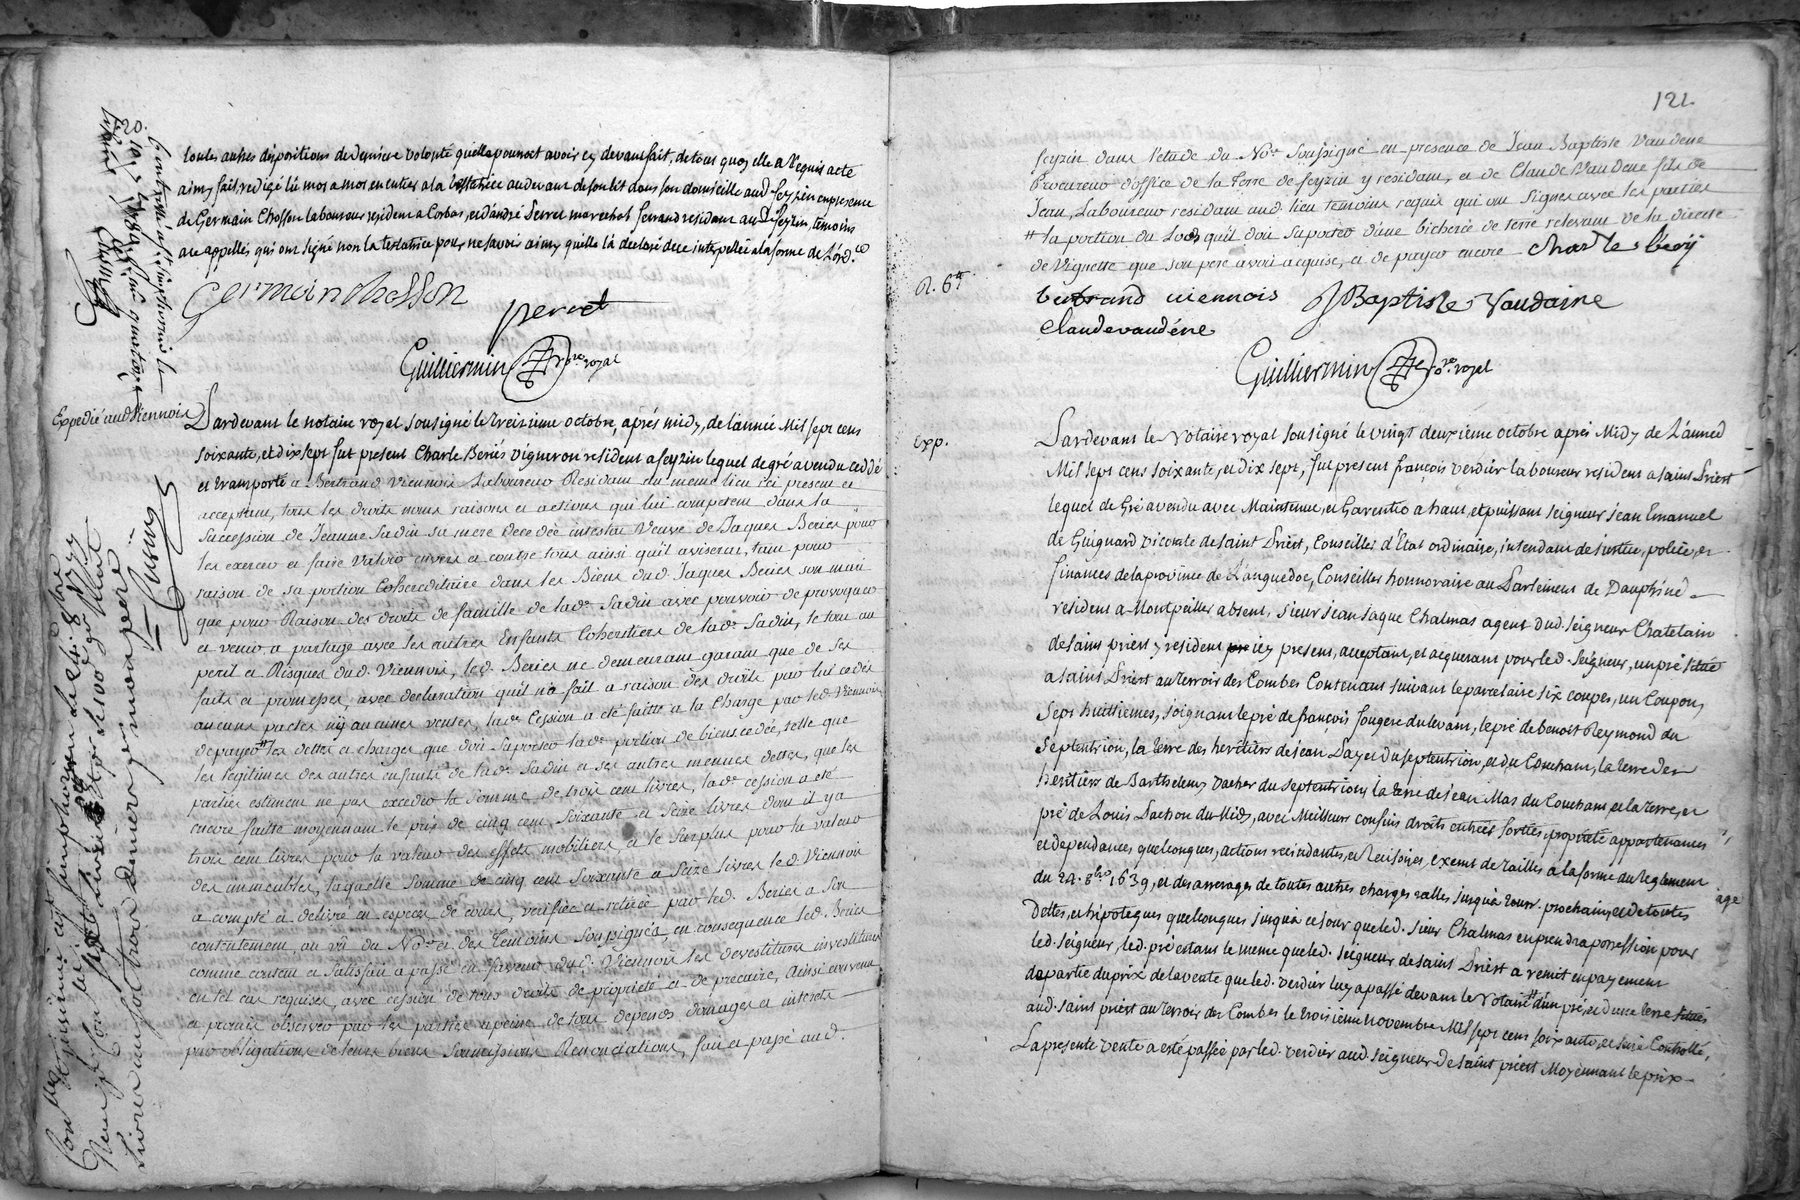 120.
toutes autres dispositions de derniere volonté qu'elle pourroit avoir cy devant fait, de tous quoy elle a requis acte
ainsy fait, redigé lû mot a mot en entier a la testatrice au devant de son lit dans son domicille aud. feyzin en presence
de Germain Chosson laboureur resident a Corbas, et d'andré Perret marechal ferrand residant aud. feyzin temoins
ace appellés qui ont signé non la testatrice pour ne savoir ainsy qu'elle là declaré de ce interpellée a la forme de l'ord.ce
Germain Chosson
perret
Guilliermin n.re royal
Expedié aud Viennois
Pardevant le notaire royal sousigné le treizieme octobre, aprés midy, de l'année Mil sept cens
soixante, et dix sept fut present Charle Beriés vigneron resident a feyzin lequel de gré a vendu ceddé
et transporté a Bertrand Viennois Laboureur Residant du meme lieu ici present et
acceptant, tous les droits noms raisons et actions qui lui competent dans la
succession de Jeanne Sadin sa mere decedée intestat Veuve de Jaques Beries pour
les exercer et faire valoir envers et contre tous ainsi quil avisera, tant pour
raison de sa portion Cohereditaire dans les Biens dud. Jaques Beries son mari
que pour Raison des droits de famille de lad.e Sadin avec pouvoir de provoquer
et venir a partage avec les autres Enfants Coheritiers de lad.e Sadin, le tout au
peril et Risques dud. Viennois, led. Beries ne demeurant garant que de ses
faits et promesses, avec declaration qu'il n'a fait a raison des droits par lui cedés
aucuns pactes ny aucunes ventes, lad.e Cession a été faitte a la Charge par led. Viennois
de payer # les dettes et charges que doit suporter lad.e portion de biens cedée, telle que
les legitimes des autres enfants de lad.e Sadin et ses autres menues dettes, que les
parties estiment ne pas exceder la somme de trois cent livres, lad.e cession a été
encore faitte moyennant le prix de cinq cent soixante et seize livres dont il y a
trois cent livres pour la valeur des effets mobiliers, et le surplus pour la valeur
des immeubles, laquelle somme de cinq cent soixante et seize livres led. Viennois
a compté et delivré en especes de cours, verifiée et retirée par led. Beries a son
contentement, au vû du No.re et des Temoins soussignés, en consequence led. Beries
comme content et satisfait a passé en faveur dud. Viennois les devestiture investiture
en tel cas requises, avec cession de tous droits de proprieté et de precaire, Ainsi convenu
et promis observer par les parties a peine de tous depends domages et interets
par obligations de leurs biens Soumissions Renonciations, fait et passé aud.
Livres aussy trois deniers y mon perié
Cusin
121.
feyzin dans l'etude du No.re soussigné en presence de Jean Baptiste Vaudene
Procureur d'office de la Terre de feyzin y residant, et de Claude Vaudene fils de
Jean, Laboureur residant aud. lieu temoins requis qui ont signés avec les parties
# la portion du Lods qu'il doit suporter d'une bicherée de terre relevant de la directe
de Vignette que son pere avoit acquise, et de payer encore charle bériÿ
R. 6 #
bertrand viennois J Baptiste Vaudaine
Claude vaudéne
Guilliermin no.re royal
Exp.
Pardevant le Notaire royal sousigné le vingt deuxieme octobre aprés Midy de l'année
Mil sept cens soixante, et dix sept, fut present françois verdier laboureur resident a saint Priest
lequel de Gré a vendu avec Maintenue, et Garentie a haut, et puissant seigneur jean Emanuel
de Guignard vicomte de saint Priest, Conseiller d'Etat ordinaire, intendant de justice, police, et
finances de la province de Languedoc, Conseiller honnoraire au Parlement de Dauphiné
resident a Montpeiller absent, sieur jean jaque Chalmas agent dud. seigneur Chatelain
de saint priest y resident icy present, acceptant, et acquerant pour led. seigneur, un pré situé
a saint Priest au terroir des Combes Contenant suivant le parcelaire six coupes, un Coupon,
sept huittiemes, joignant le pré de françois fougere du levant, le pré de benoit Reymond du
septentrion, la terre des heritiers de jean Payet du septentrion, et du Couchant, la terre des
heritiers de Barthelemy Vacher du septentrion, la terre de jean Mas du Couchant, et la terre, et
pré de Louis Pachon du Midy, avec Meilleurs confins droits entrées sorties, proprieté appartenances
et dependances quelconques, actions recindantes, et Recisoires, exemt de tailles a la forme du reglement
du 24. 8bre 1639, et des arrerages de toutes autres charges calles jusqu'à prochain, et de toutes
dettes, et hipoteques quelconques jusquà ce jour que led. sieur Chalmas en prendra possession pour
led. seigneur, led. pré estant le meme que led. seigneur de saint Priest a remit en payement
de partie du prix de la vente que led. verdier luy a passé devant le Notaire # d'un pré, et d'une terre situés
aud. saint priest au terroir des Combes le troisieme novembre Mil sept cens soixante, et seize Controllé,
La presente vente a esté passée par led. verdier aud. seigneur de saint priest Moyennant le prix